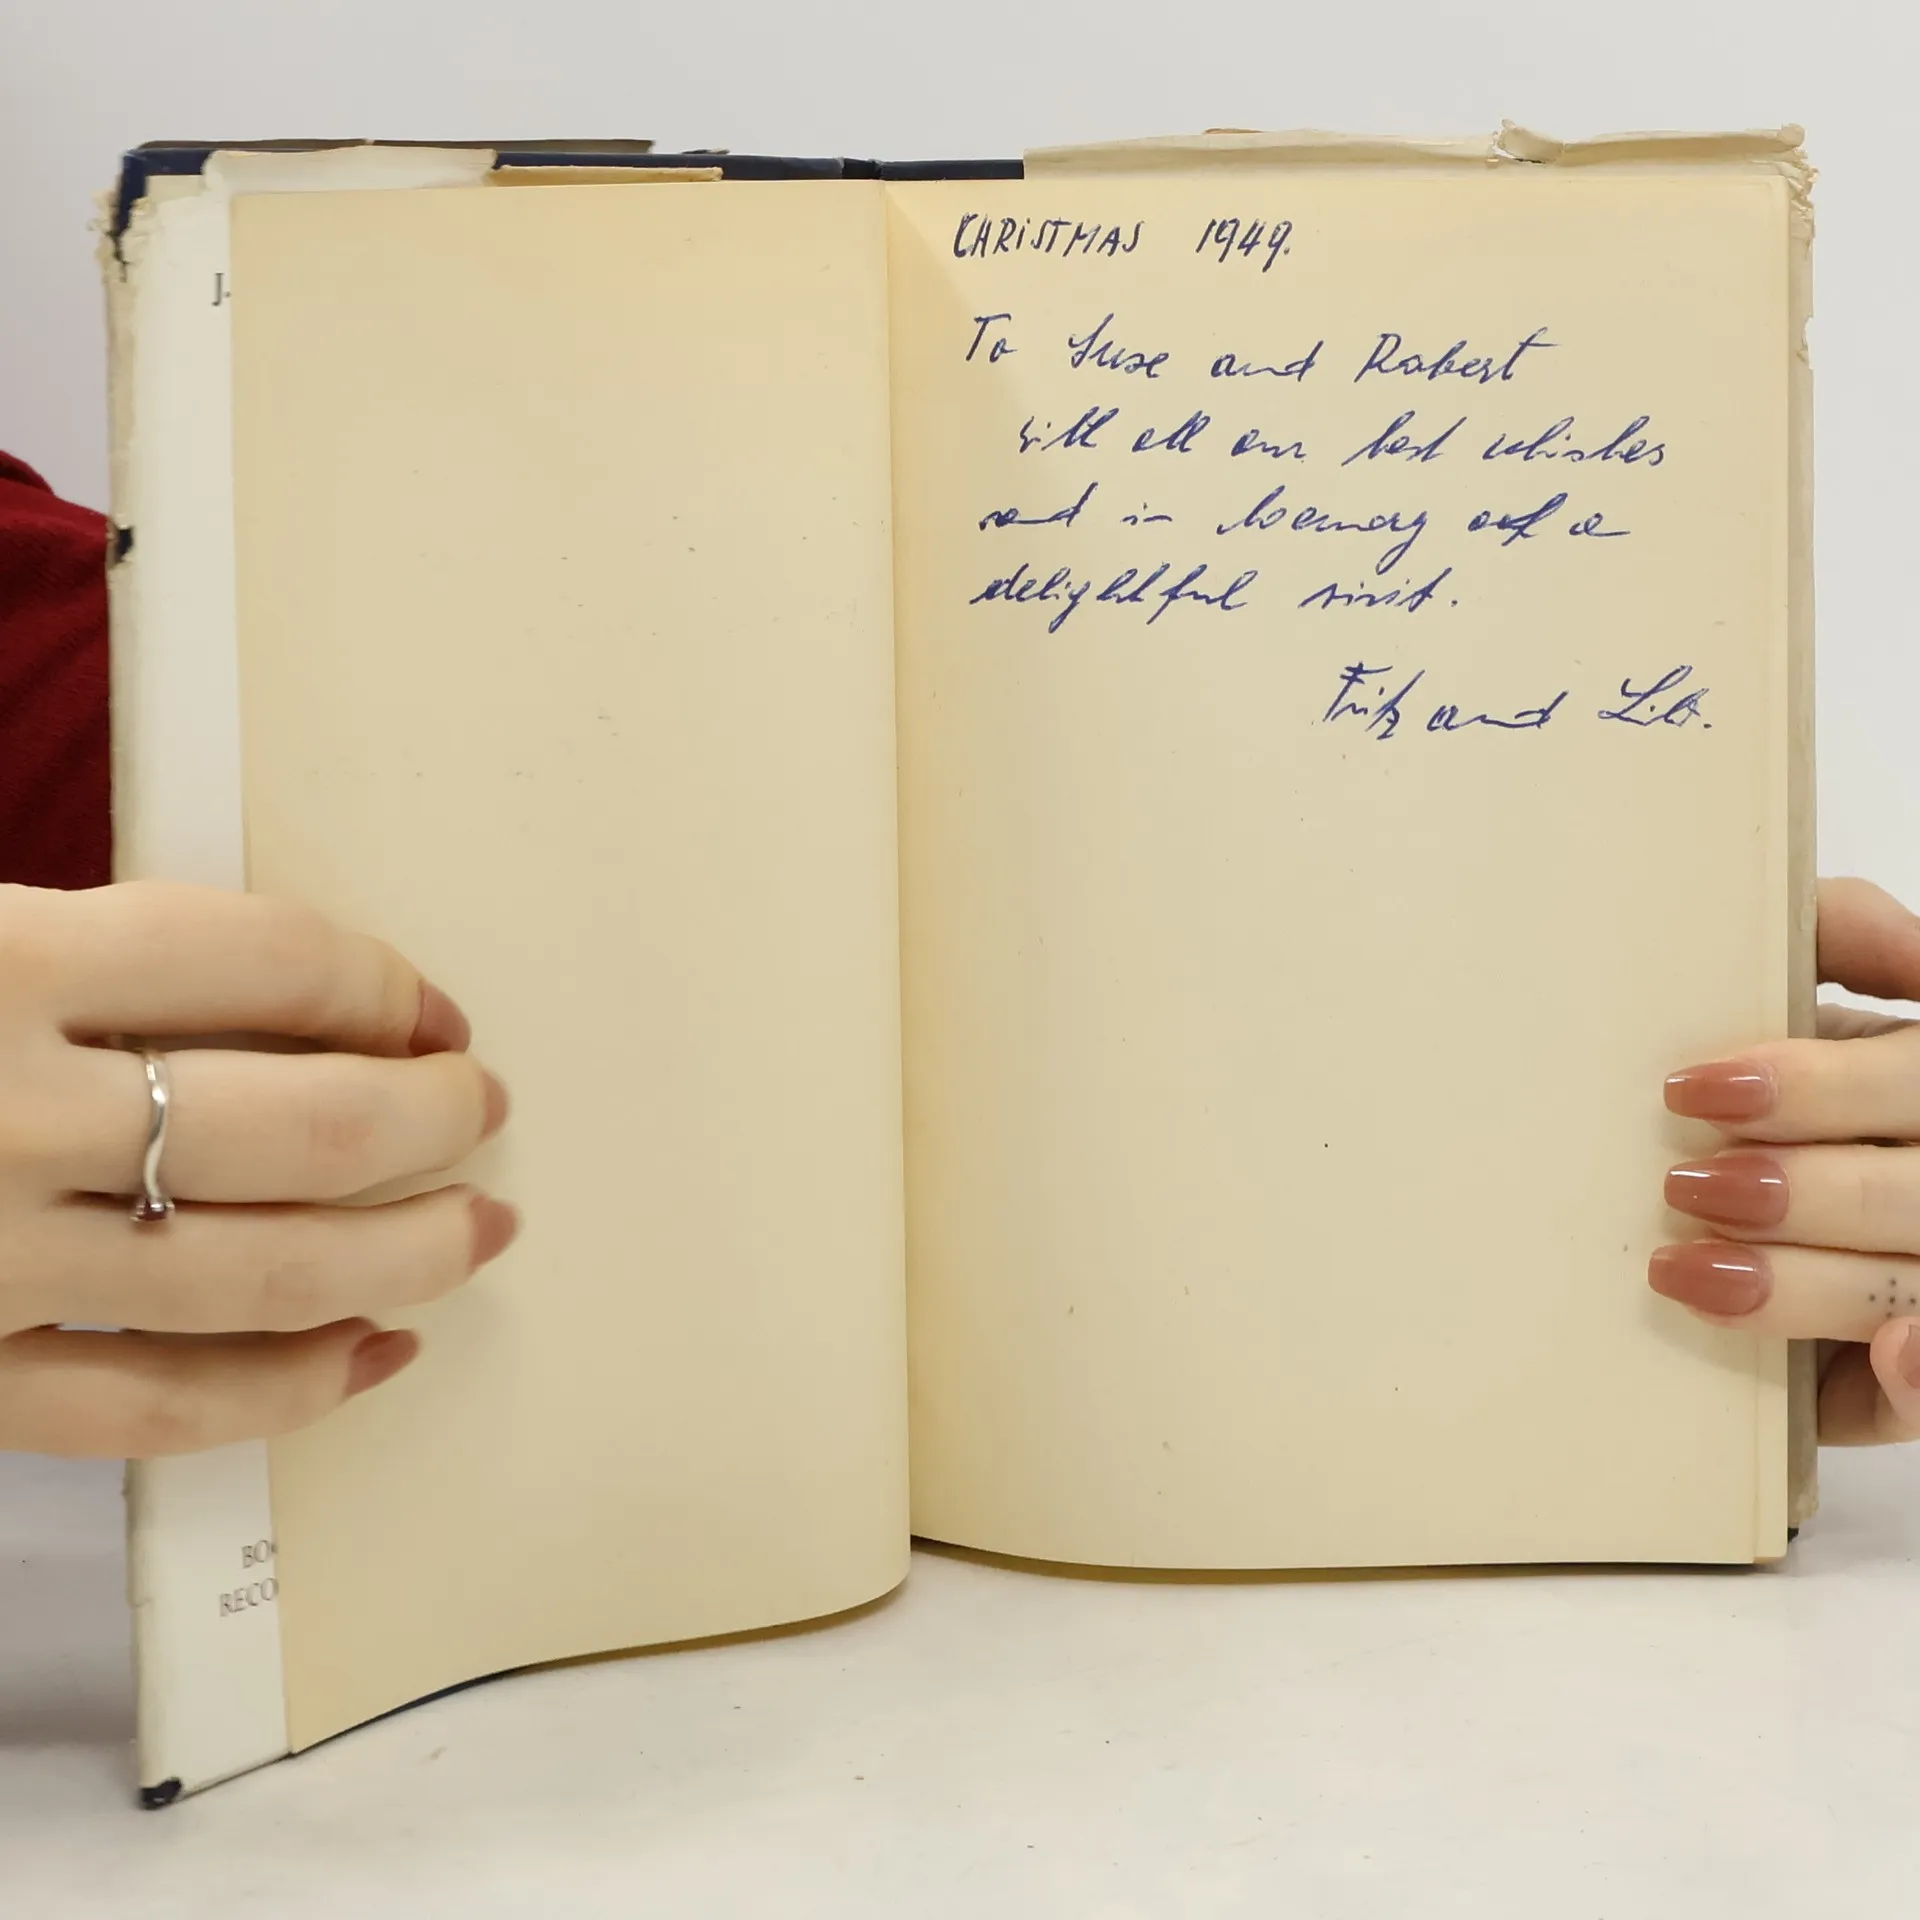 J.
BOO
RECO
CHRISTMAS 1949.
To Suse and Robert
with all our best whishes
and in memory of a
delightful visit.
Fritz and